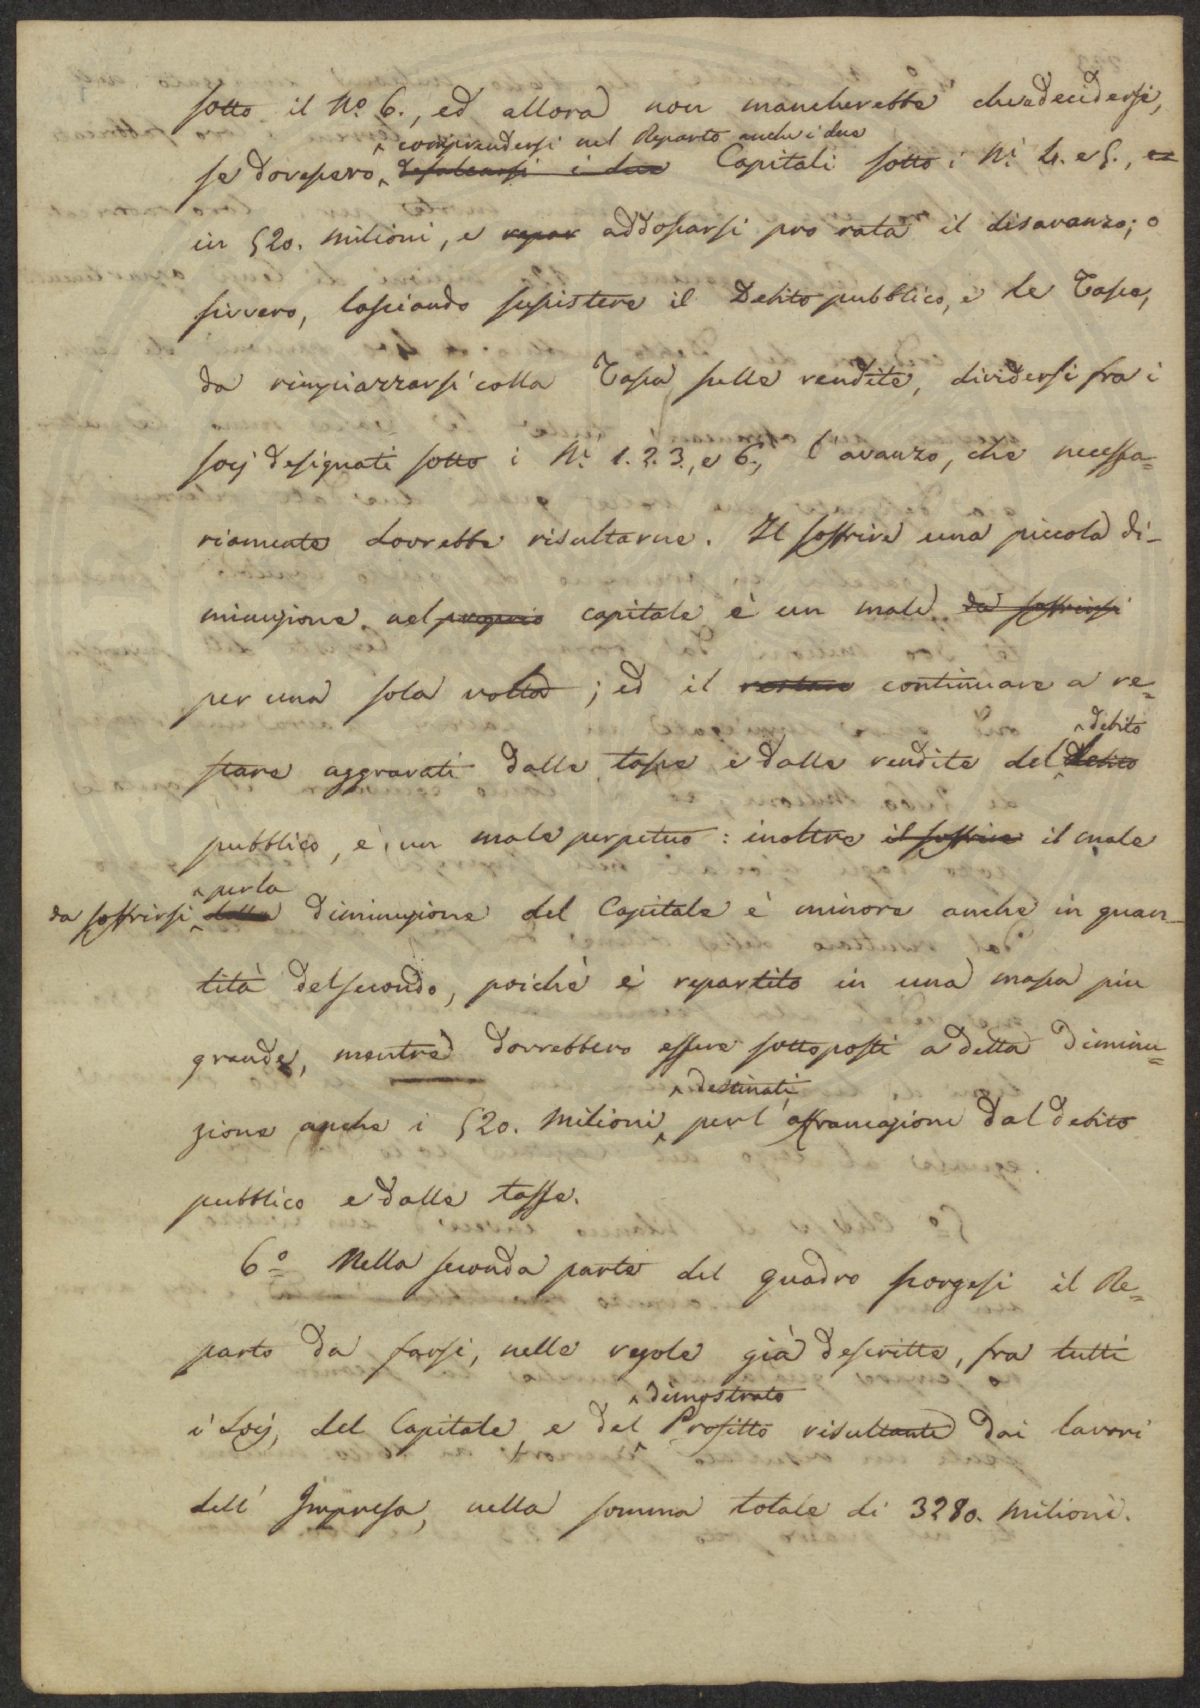 sotto il N.º 6., ed allora non mancherebbe che a decidersi,
^ comprendersi nel Reparto anche i due
se dovessero ^ defalcarsi i due Capitali sotto i N.i 4. e 5.,
in 520. milioni, e repar addossarsi pro rata il disavanzo; o
sivvero, lasciando sussistere il Debito pubblico, e le Tasse,
da rimpiazzarsi colla Tassa sulle rendite, dividersi fra i
socj designati sotto i N.i 1. 2. 3., e 6., l'avanzo, che necessa=
riamente dovrebbe risultarne. Il soffrire una piccola di=
minuzione nel proprio capitale è un male da soffrirsi
per una sola volta; ed il restare continuare a re=
^ debito
stare aggravati dalle tasse e dalle rendite del ^ debito
pubblico, è un male perpetuo: inoltre il soffrire il male
^ per la
da soffrirsi ^ della diminuzione del Capitale è minore anche in quan=
tità del secondo, poichè è repartito in una massa piu
grande, mentre dovrebbero essere sottoposti a detta diminu=
^ destinati
zione anche i 520. milioni ^ per l'affrancazione dal debito
pubblico e dalle tasse.
6.º Nella seconda parte del quadro scorgesi il Re=
parto da farsi, nelle regole già descritte, fra tutti
^ dimostrato
i Socj, del Capitale, e del ^ Profitto risultante dai lavori
dell'Impresa, nella somma totale di 3280. milioni.